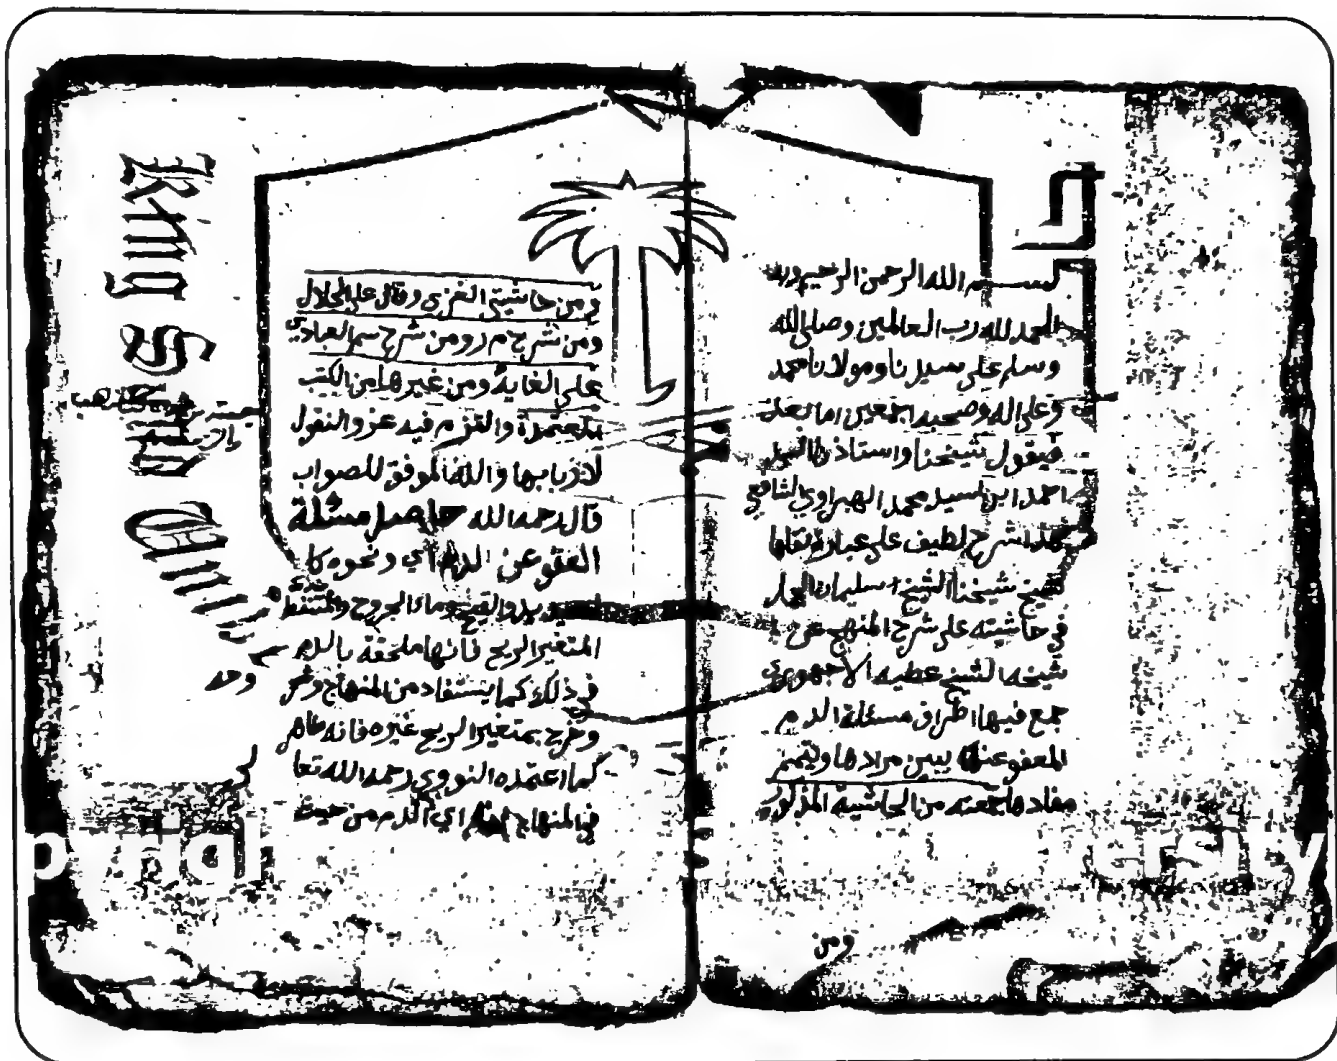 بسم الله الرحمن الرحيم وبه
الحمد لله رب العالمين وصلى الله
وسلم على سيدنا ومولانا محمد
وعلى اله وصحبه اجمعين اما بعد
فيقول شيخنا واستاذنا السيد
احمد ابن السيد محمد الهبراوي الشافعي
هذا شرح لطيف على عبارة نقلها
شيخ شيخنا الشيخ سليمان الجمل
في حاشيته على شرح المنهج عن
شيخه الشيخ عطيه الاجهوري
جمع فيها اطراف مسئلة الدم
المعفو عنه يبين مرادها ويتمم
مفادها جمعته من الحاشية المذكورة
ومن
ومن حاشيتي العزيزي وقال على الجلال
ومن شرح م ر ومن شرح سم العبادي
على الغاية ومن غيرها من الكتب
المعتمدة والتزم فيه عزو النقول
لاربابها والله الموفق للصواب
قال رحمه الله حاصل مسئلة
العفو عن الدم اي ونحوه كا
لصديد والقيح وماء الجروح والمتنفط
المتغير الريح فانها ملحقة بالدم
في ذلك كما يستفاد من المنهاج وغير
وخرج بمتغير الريح غيره فانه طاهر
كما اعتمده النووي رحمه الله تعا
في المنهاج اي الدم من حيث
King Saud University